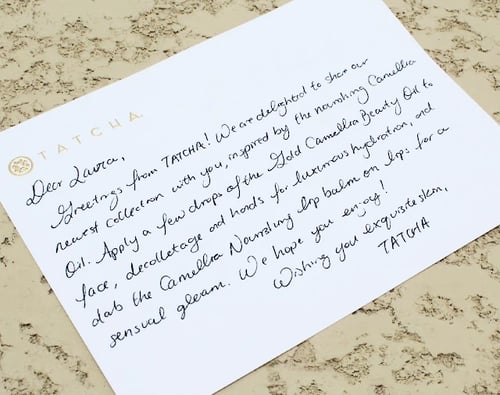 TATCHA
Dear Laura,
Greetings from TATCHA! We are delighted to share our
newest collection with you, inspired by the nourishing Camellia
Oil. Apply a few drops of the Gold Camellia Beauty Oil to
face, decolletage and hands for luxurious hydration, and
dab the Camellia Nourishing lip balm on lips for a
sensual gleam. We hope you enjoy!
Wishing you exquisite skin,
TATCHA